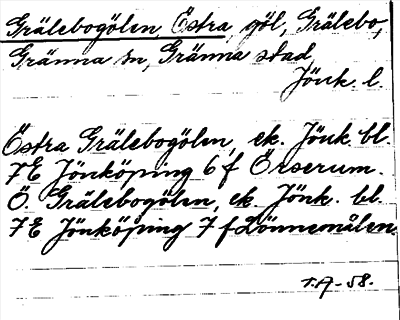 Grälebogölen, Östra, göl, Grälebo,
Gränna sn, Gränna stad,
Jönk. l.
Östra Grälebogölen, ek. Jönk. bl.
7E Jönköping 6 f Örserum.
Ö. Grälebogölen, ek. Jönk. bl.
7E Jönköping 7 f Lönnemålen.
T.A-58.